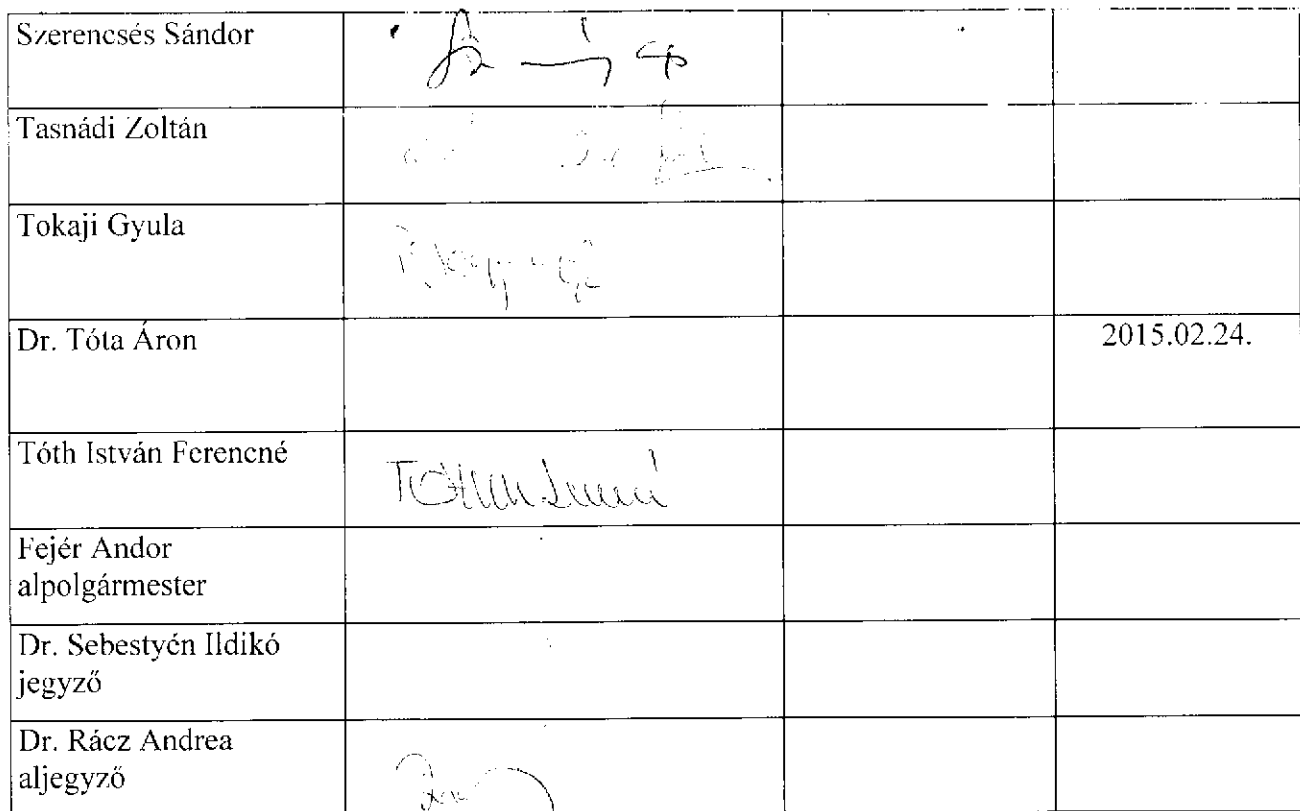 Szerencsés Sándor
Tasnádi Zoltán
Tokaji Gyula
Dr. Tóta Áron 2015.02.24.
Tóth István Ferencné
Fejér Andor
alpolgármester
Dr. Sebestyén Ildikó
jegyző
Dr. Rácz Andrea
aljegyző